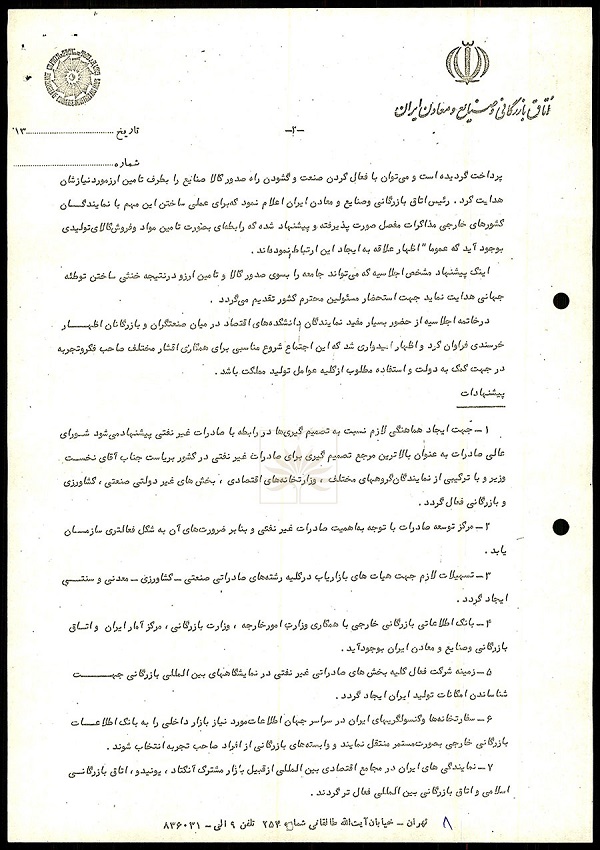 اتاق بازرگانی و صنایع و معادن ایران
-۲-
تاریخ ................ ۱۳
شماره ................
پرداخت گردیده است و می‌توان با فعال کردن صنعت و گشودن راه صدور کالا صنایع را بطرف تامین ارزمورد نیازشان
هدایت کرد . رئیس اتاق بازرگانی وصنایع و معادن ایران اعلام نمود که‌برای عملی ساختن این مهم با نمایندگان
کشورهای خارجی مذاکرات مفصل صورت پذیرفته و پیشنهاد شده که رابطه‌ای بصورت تامین مواد وفروش‌کالای‌تولیدی
بوجود آید که عموما" اظهار علاقه به ایجاد این ارتباط نموده‌اند .
اینک پیشنهاد مشخص اجلاسیه که می‌تواند جامعه را بسوی صدور کالا و تامین ارزو درنتیجه خنثی ساختن توطئه
جهانی هدایت نماید جهت استحضار مسئولین محترم کشور تقدیم می‌گردد .
درخاتمه اجلاسیه از حضور بسیار مفید نمایندگان دانشکده‌های اقتصاد در میان صنعتگران و بازرگانان اظهار
خرسندی فراوان کرد و اظهار امیدواری شد که این اجتماع شروع مناسبی برای همکاری اقشار مختلف صاحب فکروتجربه
در جهت کمک به دولت و استفاده مطلوب ازکلیه عوامل تولید مملکت باشد .
پیشنهادات
۱ – جهت ایجاد هماهنگی لازم نسبت به تصمیم گیری‌ها در رابطه با صادرات غیر نفتی پیشنهادمی‌شود شورای
عالی صادرات به عنوان بالاترین مرجع تصمیم گیری برای صادرات غیر نفتی در کشور بریاست جناب آقای نخست
وزیر و با ترکیبی از نمایندگان‌گروههای مختلف ، وزارتخانه‌های اقتصادی ، بخش های غیر دولتی صنعتی ، کشاورزی
و بازرگانی فعال گردد .
۲ – مرکز توسعه صادرات با توجه به‌اهمیت صادرات غیر نفتی و بنابر ضرورت‌های آن به شکل فعالتری سازمان
یابد .
۳ – تسهیلات لازم جهت هیات های بازاریاب درکلیه رشته‌های صادراتی صنعتی – کشاورزی – معدنی و سنتی
ایجاد گردد .
۴ – بانک اطلاعاتی بازرگانی خارجی با همکاری وزارت امورخارجه ، وزارت بازرگانی ، مرکز آمار ایران و اتاق
بازرگانی وصنایع و معادن ایران بوجودآید .
۵ – زمینه شرکت فعال کلیه بخش های صادراتی غیر نفتی در نمایشگاههای بین المللی بازرگانی جهت
شناساندن امکانات تولید ایران ایجاد گردد .
۶ – سفارتخانه‌ها وکنسولگریهای ایران در سراسر جهان اطلاعات‌مورد نیاز بازار داخلی را به بانک اطلاعات
بازرگانی خارجی بصورت‌مستمر منتقل نمایند و وابسته‌های بازرگانی از افراد صاحب تجربه انتخاب شوند .
۷ – نمایندگی های ایران در مجامع اقتصادی بین المللی ازقبیل بازار مشترک آنکتاد ، یونیدو ، اتاق بازرگانی
اسلامی و اتاق بازرگانی بین المللی فعال تر گردند .
۸
تهران – خیابان آیت‌الله طالقانی شماره ۲۵۴ تلفن ۹ الی – ۸۳۶۰۳۱